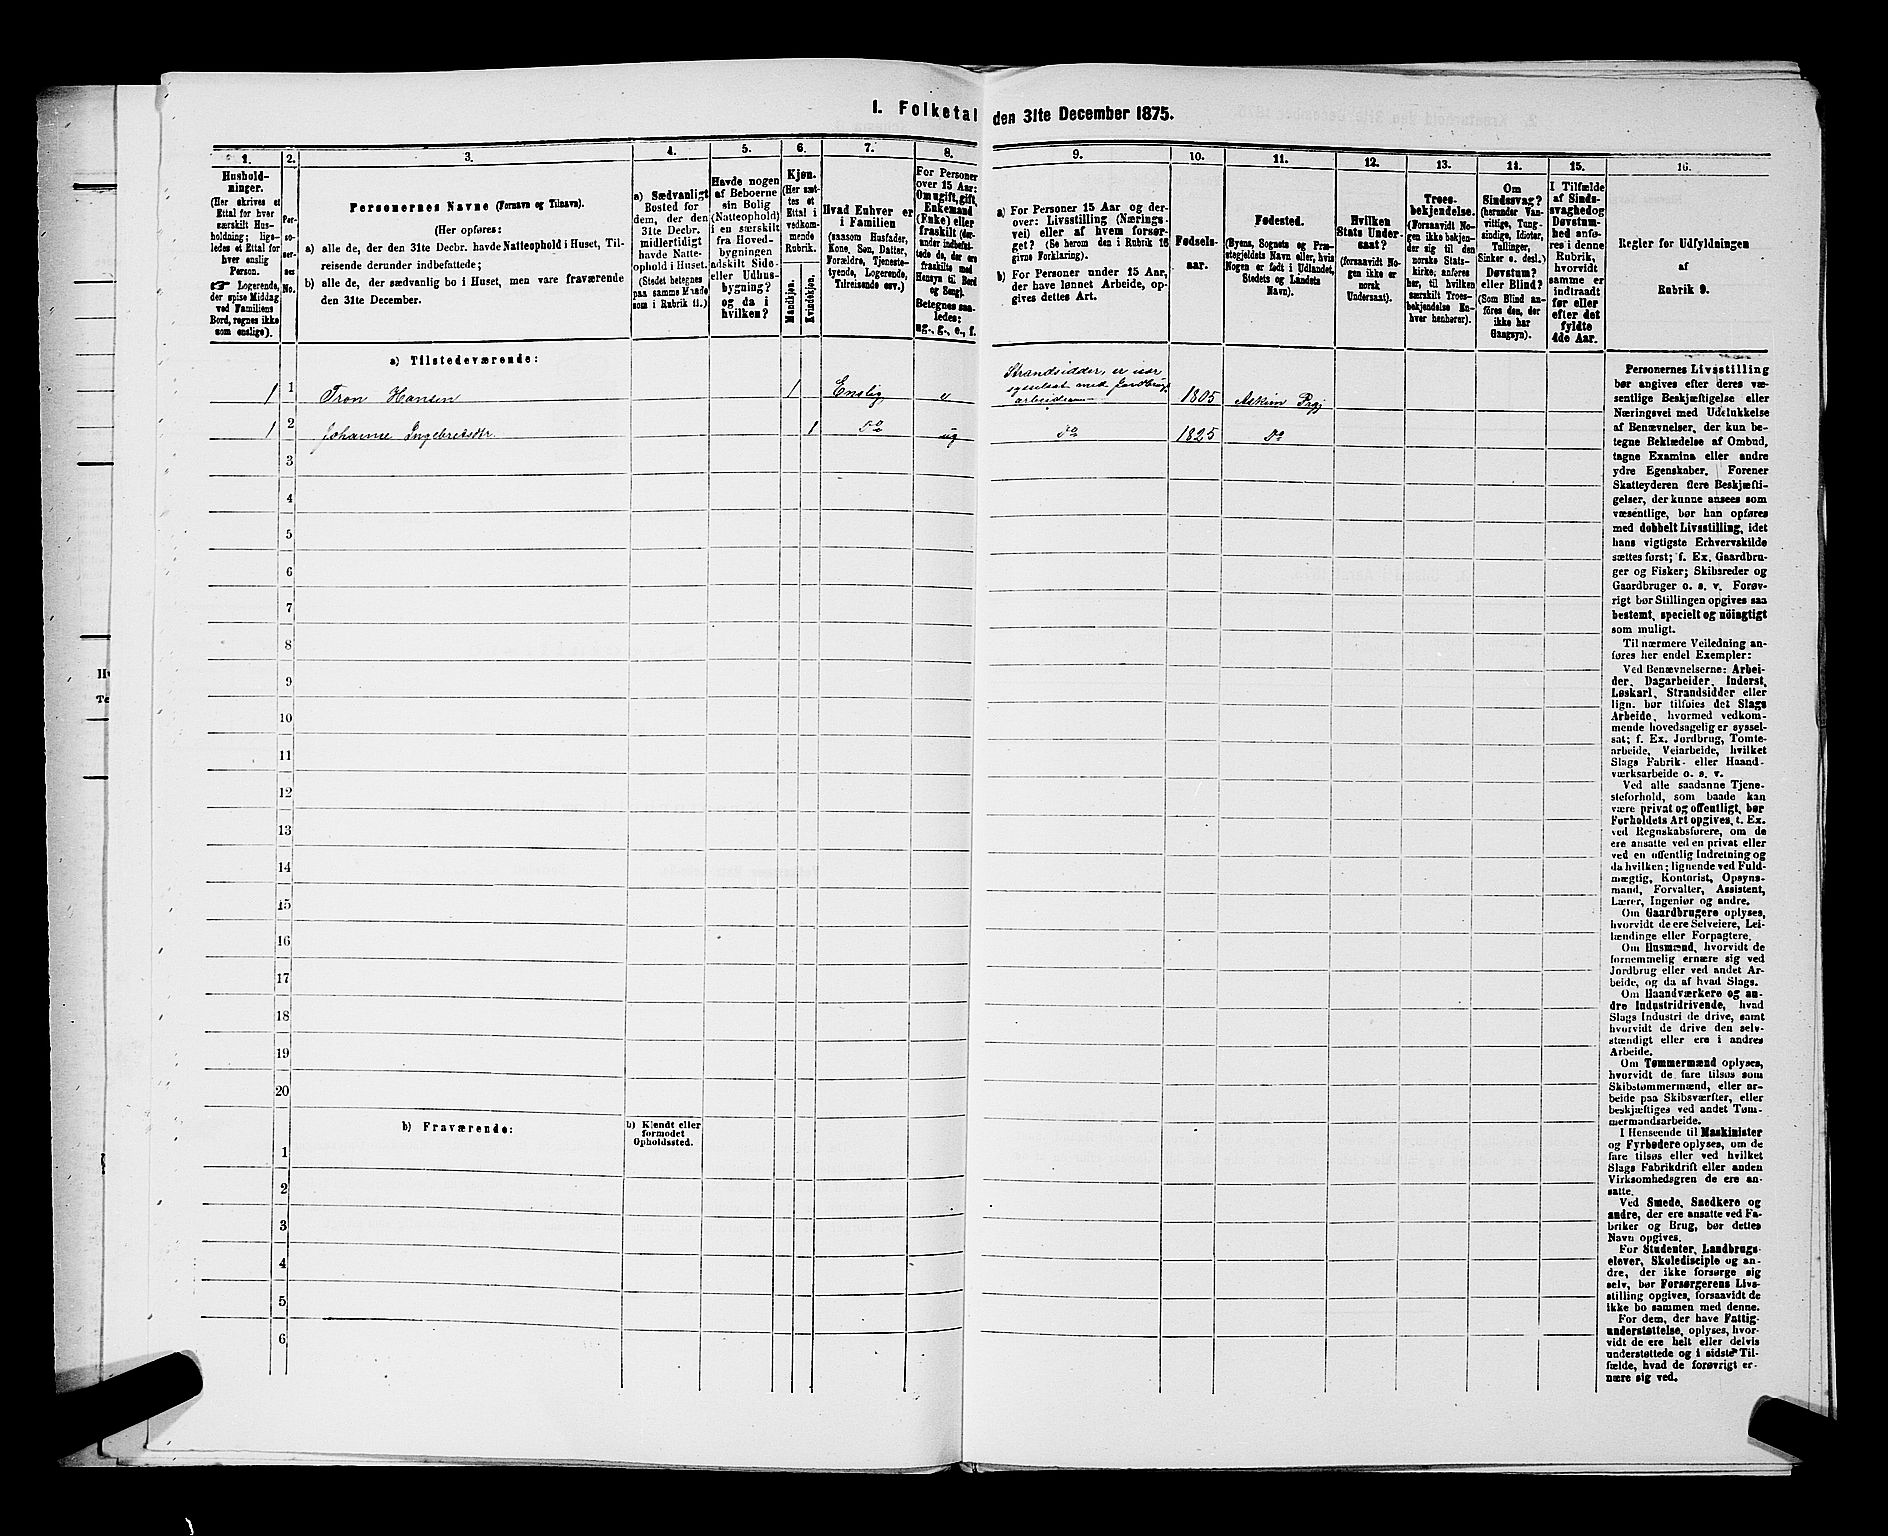 1. Folketal den 31te December 1875.
1. 2. 3. 4. 5. 6. 7. 8. 9. 10. 11. 12. 13. 14. 15. 16.
Hushold-
ninger.
(Her skrives et
Ettal for hver
særskilt Hus-
holdning; lige-
ledes et Ettal for
hver enslig
Person.
☞ Logerende,
der spise Middag
ved Familiens
Bord, regnes ikke
som enslige).
Per-
so-
ner-
nes
No.
Personernes Navne (Fornavn og Tilnavn).
(Her opføres:
a) alle de, der den 31te Decbr. havde Natteophold i Huset, Til-
reisende derunder indbefattede;
b) alle de, der sædvanlig bo i Huset, men vare fraværende
den 31te December.
a) Sædvanligt
Bosted for
dem, der den
31te Decbr.
midlertidigt
havde Natte-
ophold i Huset.
(Stedet betegnes
paa samme Maade
som i Rubrik 11.)
Havde nogen
af Beboerne
sin Bolig
(Natteophold)
i en særskilt
fra Hoved-
bygningen
adskilt Side-
eller Udhus-
bygning?
og da i
hvilken?
Kjøn.
(Her sæt-
tes et
Ettal i
vedkom-
mende
Rubrik.
Mandkjøn.
Kvindekjøn.
Hvad Enhver er
i Familien
(saasom Husfader,
Kone, Søn, Datter,
Forældre, Tjeneste-
tyende, Logerende,
Tilreisende osv.)
For Personer
over 15 Aar:
Om ugift, gift,
Enkemand
(Enke) eller
fraskilt (der-
under indbefat-
tede de, der ere
fraskilte med
Hensyn til Bord
og Seng).
Betegnes saa-
ledes:
ug., g., e., f.
a) For Personer 15 Aar og der-
over: Livsstilling (Nærings-
vei) eller af hvem forsør-
get? (Se herom den i Rubrik 16
givne Forklaring).
b) For Personer under 15 Aar,
der have lønnet Arbeide, op-
gives dettes Art.
Fødsels-
aar.
Fødested.
(Byens, Sognets og Præ-
stegjeldets Navn eller, hvis
Nogen er født i Udlandet,
Stedets og Landets
Navn).
Hvilken
Stats Under-
saat?
(forsaavidt No-
gen ikke er
norsk
Undersaat).
Troes-
bekjendelse.
(Forsaavidt No-
gen ikke bekjen-
der sig til den
norske Stats-
kirke, anføres
her, til hvilken
særskilt Troes-
bekjendelse En-
hver henhører).
Om
Sindssvag?
(herunder Van-
vittige, Tung-
sindige, Idioter,
Tullinger,
Sinker o. desl.)
Døvstum?
eller Blind?
(Som Blind an-
føres den, der
ikke har
Gangsyn).
I Tilfælde
af Sinds-
svaghed og
Døvstum-
hed anfø-
res i denne
Rubrik,
hvorvidt
samme er
indtraadt
før eller
efter det
fyldte
4de Aar.
Regler for Udfyldningen
af
Rubrik 9.
a) Tilstedeværende:
1 1 Tron Hansen 1 Enslig e Strandsidder, er især
sysselsat med Jordbrugs-
arbeide 1805 Askim Prgj
1 2 Johanne Ingebretsdtr. 1 Do ug Do 1825 Do
3
4
5
6
7
8
9
10
11
12
13
14
15
16
17
18
19
20
b) Fraværende:
b) Kjendt eller
formodet
Opholdssted.
1
2
3
4
5
6
Personernes Livsstilling
bør angives efter deres væ-
sentlige Beskjæftigelse eller
Næringsvei med Udelukkelse
af Benævnelser, der kun be-
tegne Beklædelse af Ombud,
tagne Examina eller andre
ydre Egenskaber. Forener
Skatteyderen flere Beskjæfti-
gelser, der kunne ansees som
væsentlige, bør han opføres
med dobbelt Livsstilling, idet
hans vigtigste Erhvervskilde
sættes først; f. Ex. Gaardbru-
ger og Fisker; Skibsreder og
Gaardbruger o. s. v. Forøv-
rigt bør Stillingen opgives saa
bestemt, specielt og nöiagtigt
som muligt.
Til nærmere Veiledning an-
føres her endel Exempler:
Ved Benævnelserne: Arbei-
der, Dagarbeider, Inderst,
Løskarl, Strandsidder eller
lign. bør tilføies det Slags
Arbeide, hvormed vedkom-
mende hovedsagelig er syssel-
sat; f. Ex. Jordbrug, Tomte-
arbeide, Veiarbeide, hvilket
Slags Fabrik- eller Haand-
værksarbeide o. s. v.
Ved alle saadanne Tjene-
steforhold, som baade kan
være privat og offentligt, bør
Forholdets Art opgives, t. Ex.
ved Regnskabsførere, om de
ere ansatte ved en privat eller
ved en offentlig Indretning og
da hvilken; lignende ved Fuld-
mægtig, Kontorist, Opsyns-
mand, Forvalter, Assistent,
Lærer, Ingeniør og andre.
Om Gaardbrugere oplyses,
hvorvidt de ere Selveiere, Lei-
lændinge eller Forpagtere.
Om Husmænd, hvorvidt de
fornemmelig ernære sig ved
Jordbrug eller ved andet Ar-
beide, og da af hvad Slags.
Om Haandværkere og an-
dre Industridrivende, hvad
Slags Industri de drive, samt
hvorvidt de drive den selv-
stændigt eller ere i andres
Arbeide.
Om Tømmermænd oplyses,
hvorvidt de fare tilsøs som
Skibstømmermænd, eller ar-
beide paa Skibsværfter, eller
beskjæftiges ved andet Tøm-
mermandsarbeide.
I Henseende til Maskinister
og Fyrbødere oplyses, om de
fare tilsøs eller ved hvilket
Slags Fabrikdrift eller anden
Virksomhedsgren de ere an-
satte.
Ved Smede, Snedkere og
andre, der ere ansatte ved Fa-
briker og Brug, bør dettes
Navn opgives.
For Studenter, Landbrugs-
elever, Skoledisciple og an-
dre, der ikke forsørge sig
selv, bør Forsørgerens Livs-
stilling opgives, forsaavidt de
ikke bo sammen med denne.
For dem, der have Fattig-
understøttelse, oplyses, hvor-
vidt de ere helt eller delvis
understøttede og i sidste Til-
fælde, hvad de forøvrigt er-
nære sig ved.